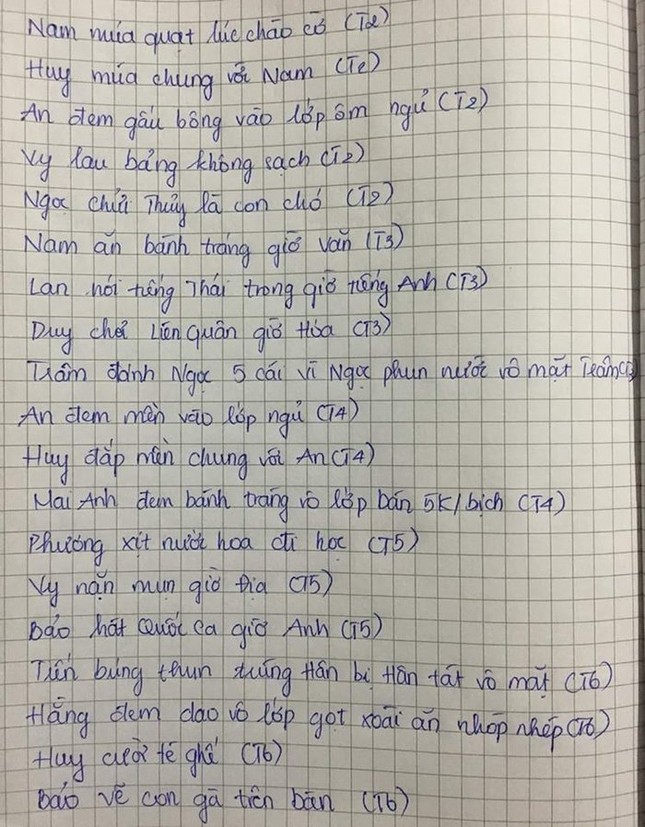 Nam múa quạt lúc chào cờ (T2)
Huy múa chung với Nam (T2)
An đem gấu bông vào lớp ôm ngủ (T2)
Vy lau bảng không sạch (T2)
Ngọc chửi Thủy là con chó (T2)
Nam ăn bánh tráng giờ văn (T3)
Lan nói tiếng Thái trong giờ tiếng Anh (T3)
Duy chơi Liên Quân giờ Hóa (T3)
Trâm đánh Ngọc 5 cái vì Ngọc phun nước vô mặt Trâm
An đem mền vào lớp ngủ (T4)
Huy đắp mền chung với An (T4)
Mai Anh đem bánh tráng vô lớp bán 5K/bịch (T4)
Phương xịt nước hoa đi học (T5)
Vy nặn mụn giờ Địa (T5)
Bảo hát Quốc Ca giờ Anh (T5)
Tiến búng thun trúng Hân bị Hân tát vô mặt (T6)
Hằng đem dao vô lớp gọt xoài ăn nhóp nhép (T6)
Huy cười té ghế (T6)
Bảo vẽ con gà trên bàn (T6)